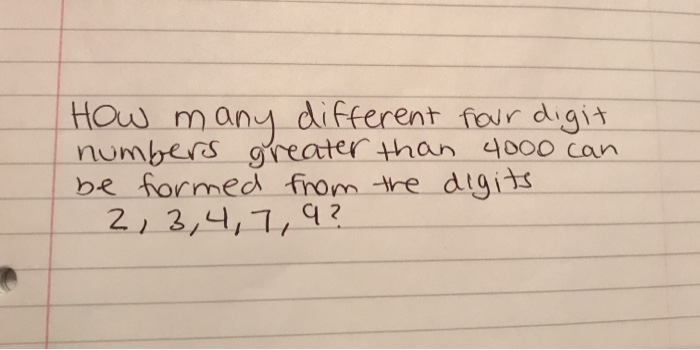 How many different four digit
numbers greater than 4000 can
be formed from the digits
2, 3, 4, 7, 9?